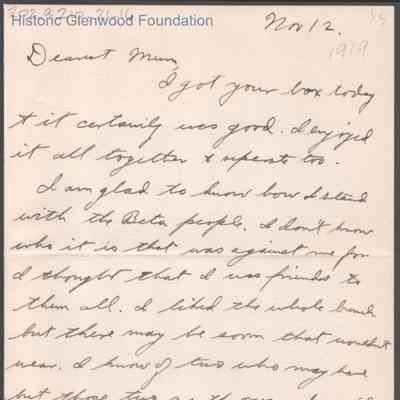 Historic Glenwood Foundation
Nov 12.
1919
Dearest Mum,
I got your box today
& it certainly was good. I enjoyed
it all together & seperate too.
I am glad to know how I stand
with the Beta people. I don't know
who it is that was against me for
I thought that I was friends to
them all. I liked the whole bunch
but there may be some that wouldn't
wear. I know of two who may have
but those two